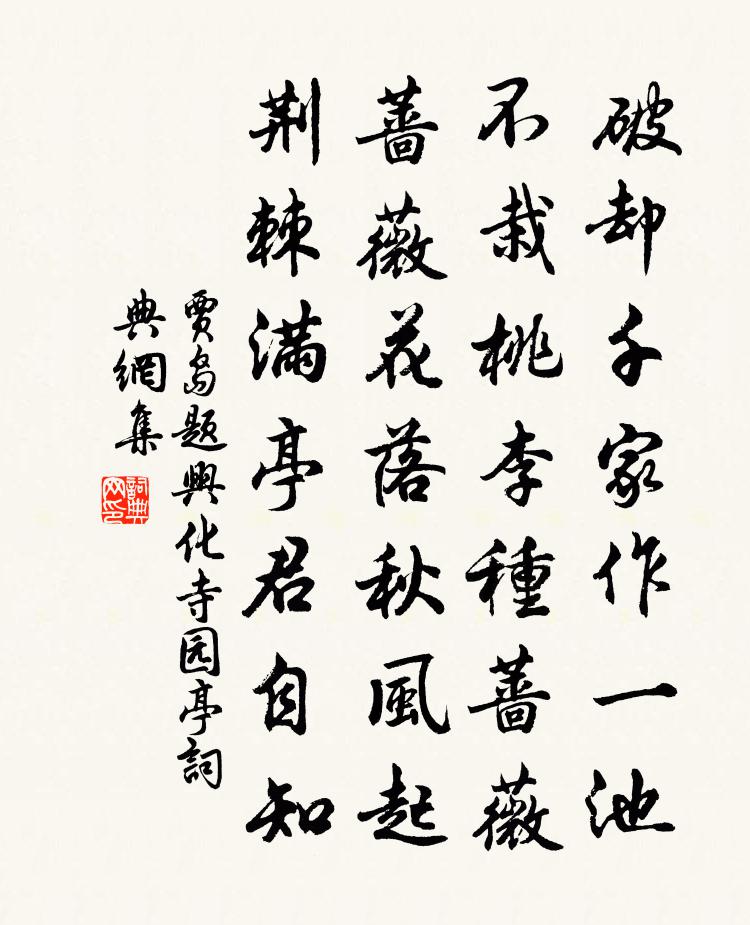 破却千家作一池
不栽桃李種薔薇
薔薇花落秋風起
荆棘满亭君自知
贾島题興化寺园亭詞
典網集
詞典
网印